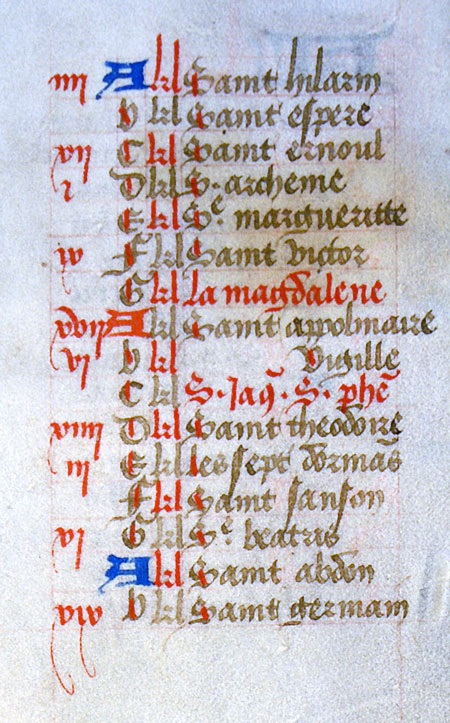 iiii A kl Saint hilarin
b kl Saint espere
xii C kl Saint ernoul
i D kl S. archeme
E kl Se margueritte
ix F kl Saint victor
G kl La magdalene
xvii A kl Saint appolinaire
vi b kl Vigille
C kl S. Jaq. S. phe
xiiii D kl Saint theodore
iii E kl les sept dormas
F kl Saint sanson
xi G kl Se beatris
A kl Saint abdon
xix b kl Saint germain